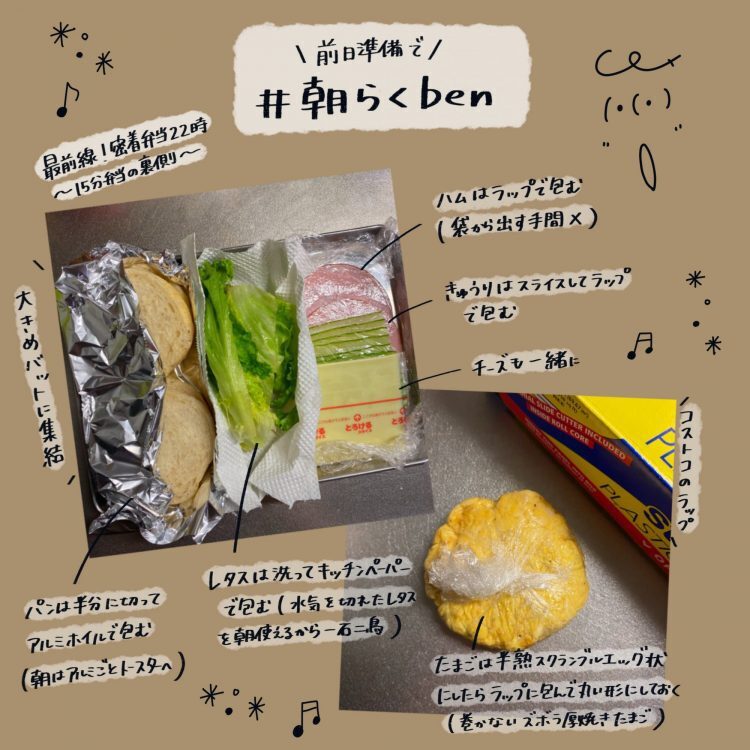 \前日準備で/
#朝らくben
最前線！密着弁当22時
〜15分弁当の裏側〜
ハムはラップで包む
(袋から出す手間×)
きゅうりはスライスしてラップ
で包む
チーズも一緒に
大きめバットに集結
とろける
とろける
コストコのラップ
SLIDE CUTTER INCLUDED
INSIDE ROLL CORE.
PLASTIC
パンは半分に切って
アルミホイルで包む
(朝はアルミごとトースターへ)
レタスは洗ってキッチンペーパー
で包む(水気を切れたレタス
を朝使えるから一石二鳥)
たまごは半熟スクランブルエッグ状
にしたらラップに包んで丸い形にしておく
(巻かないズボラ厚焼きたまご)